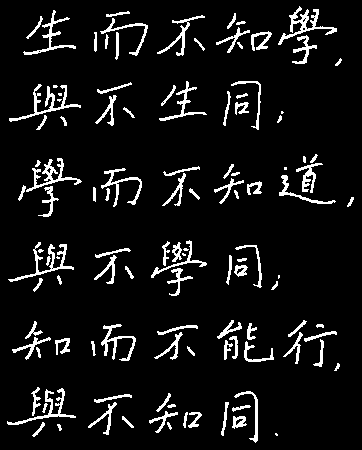 生而不知學,
與不生同;
學而不知道,
與不學同;
知而不能行,
與不知同.